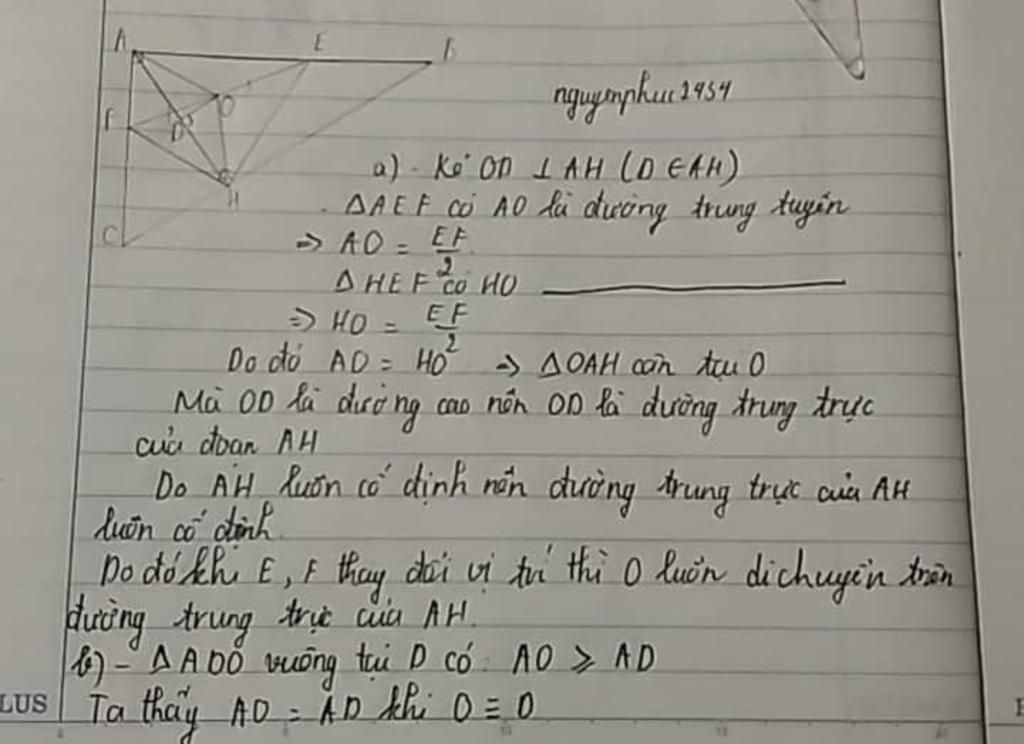 A E B
F O
D
H
C
nguyenphuc2454
a) - Kẻ OD ⊥ AH (D ∈ AH)
. ΔAEF có AO là đường trung tuyến
=> AO = EF/2
ΔHEF có HO ————
=> HO = EF/2
Do đó AO = HO => ΔOAH cân tại O
Mà OD là đường cao nên OD là đường trung trực
của đoạn AH
Do AH luôn cố định nên đường trung trực của AH
luôn cố định.
Do đó khi E, F thay đổi vị trí thì O luôn di chuyển trên
đường trung trực của AH.
b) - ΔADO vuông tại D có: AO ≥ AD
LUS
Ta thấy AO = AD khi O ≡ D